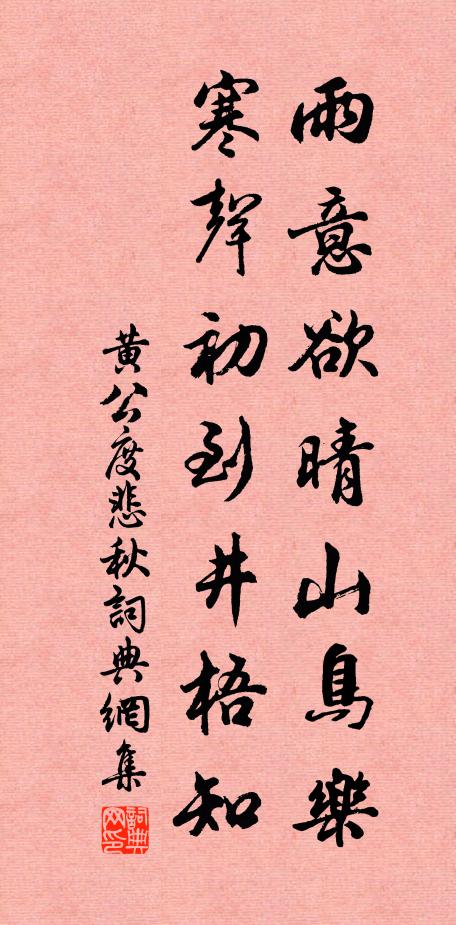 雨意欲晴山鳥樂
寒聲初到井梧知
黄公度悲秋詞典網集
詞典网印